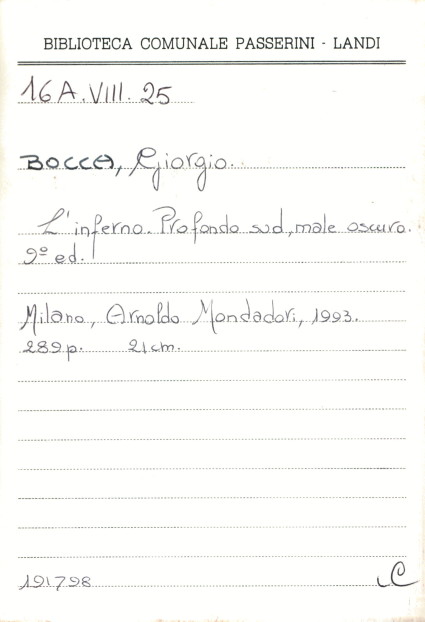 BIBLIOTECA COMUNALE PASSERINI - LANDI
16 A. VIII. 25
BOCCA, Giorgio.
L'inferno. Profondo sud, male oscuro.
9º ed.
Milano, Arnoldo Mondadori, 1993.
289 p. 21 cm.
191798 C